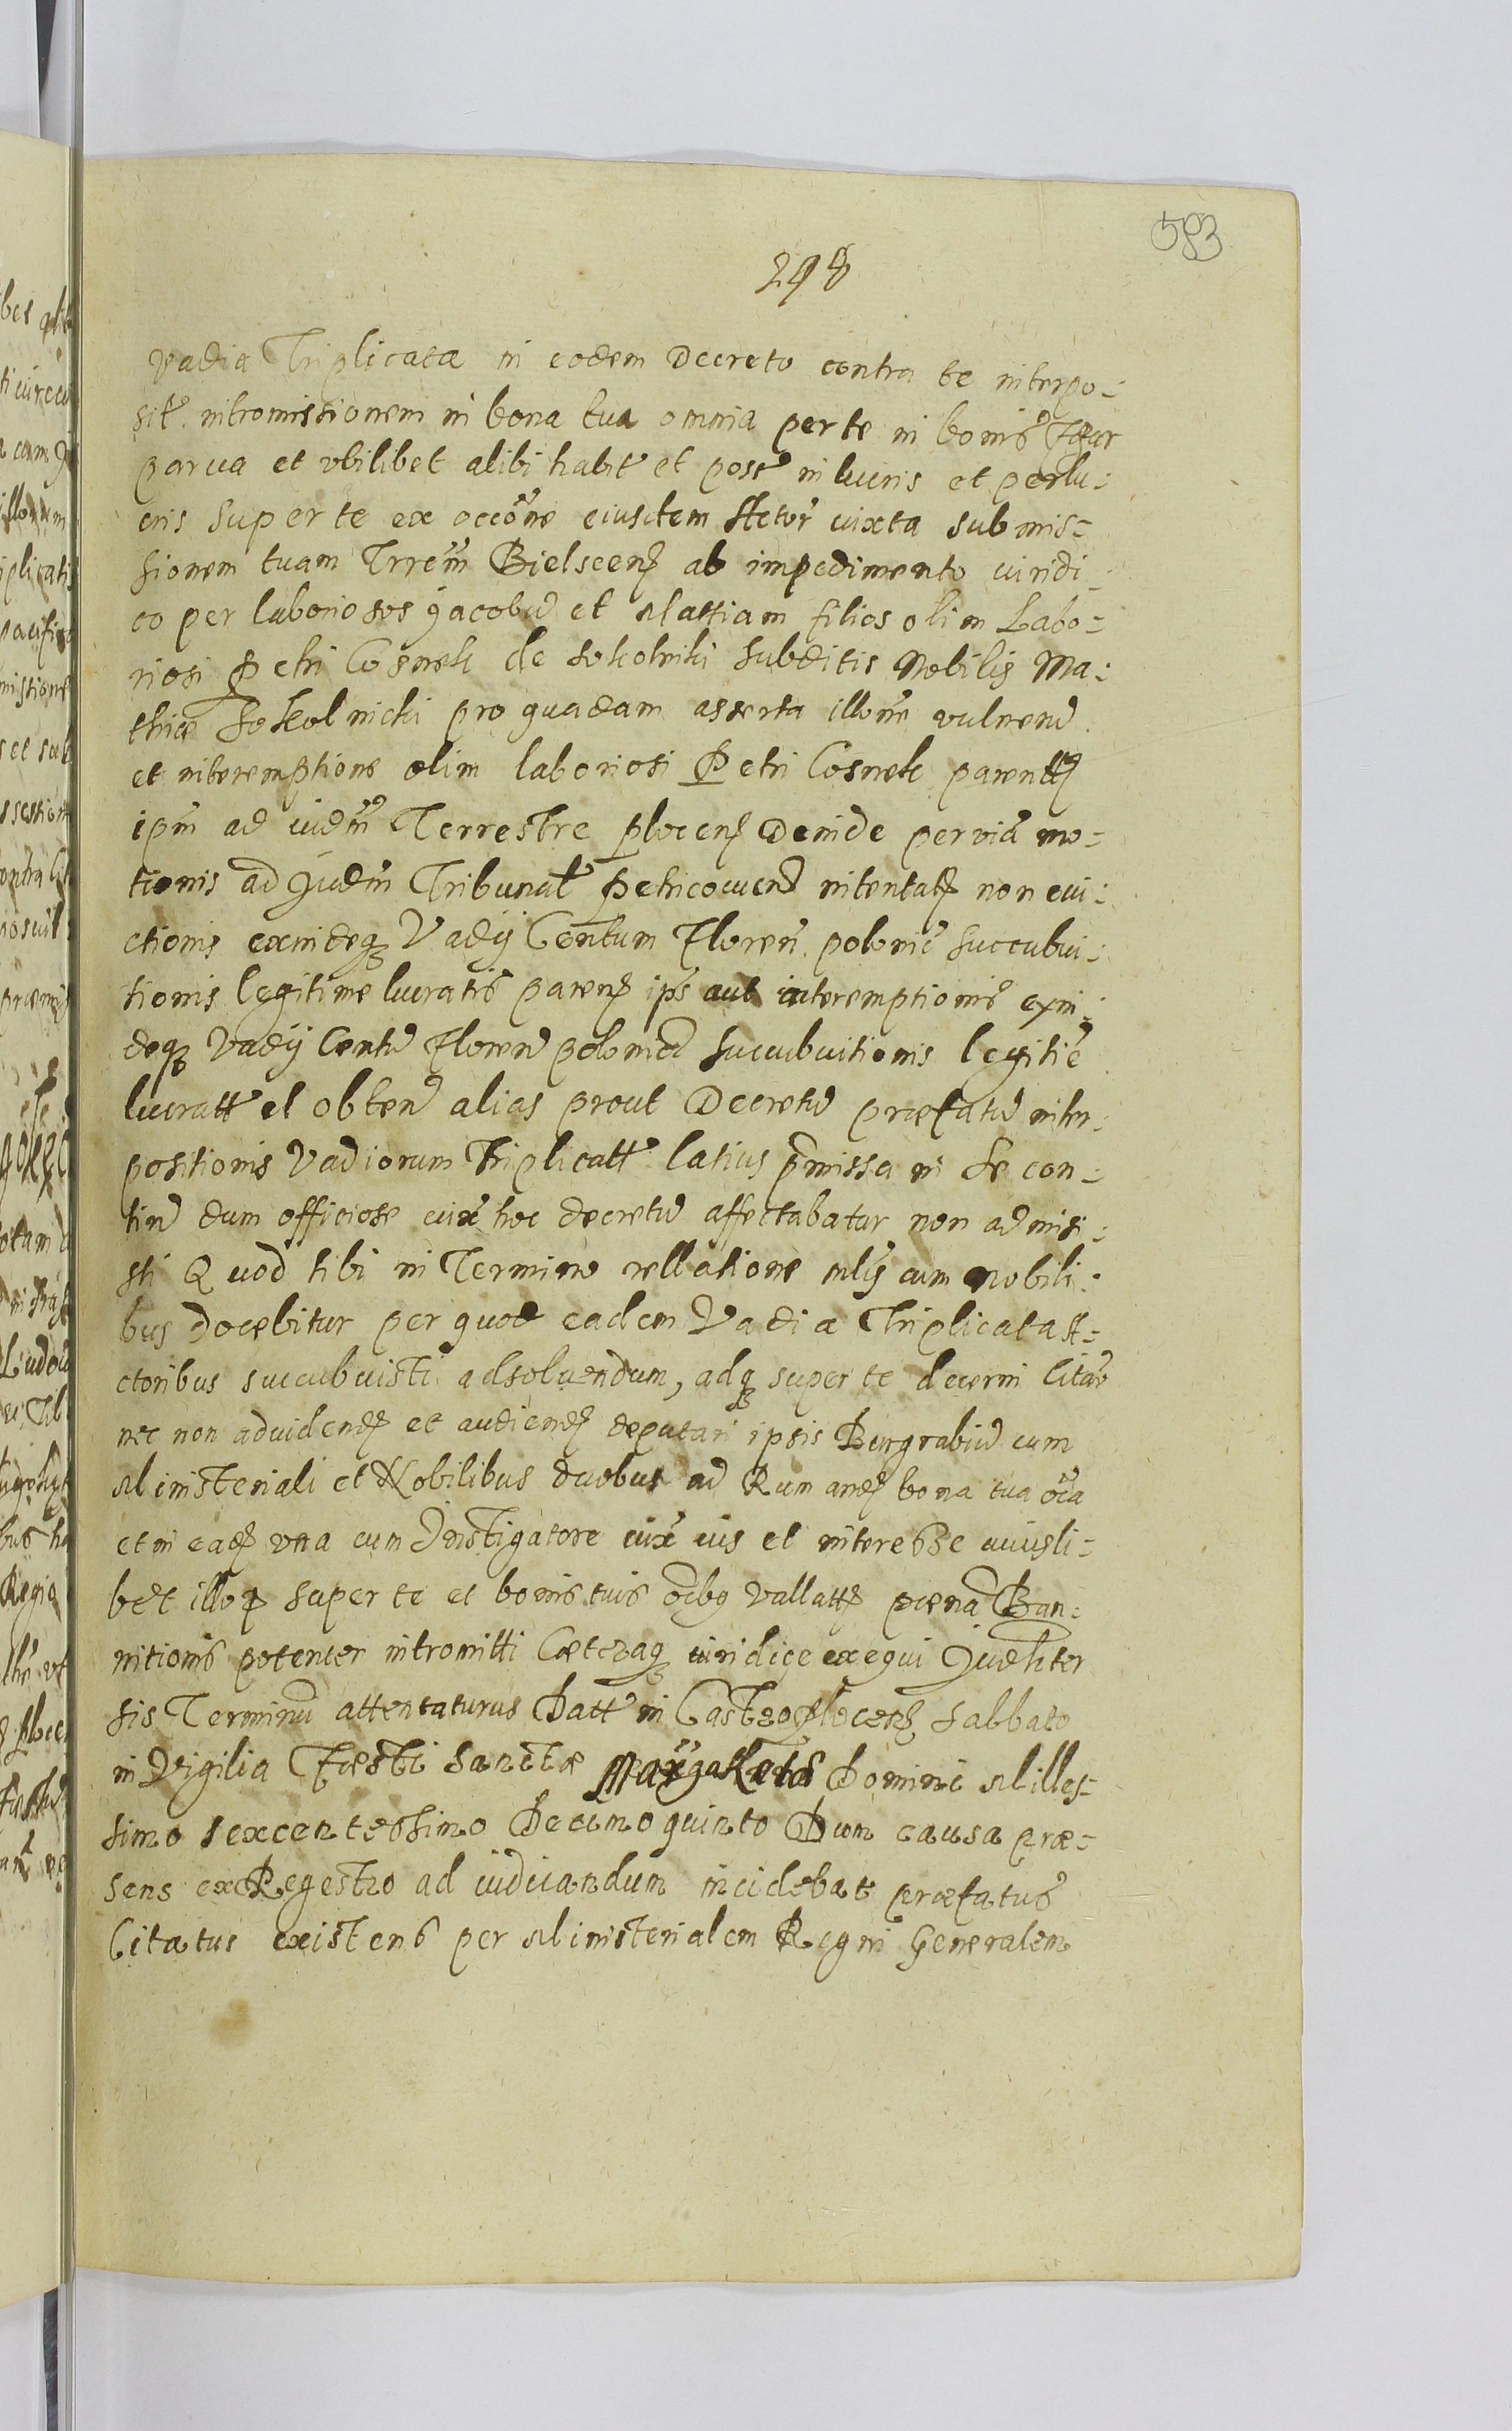 583
298
Vadia Triplicata in eodem Decreto contra te interpo-
sit. intromissionem in bona tua omnia per te in bonis
parva et vbilibet alibi habit et poss in lucris et perlu-
cris super te ex occone eiusdem Actor iuxta submis-
sionem tuam Trrem Bielscen ab impedimento iuridi-
co per laboriosos Jacobu et Mattiam filios olim Labo-
riosi Petri Cosnek de Sokolniki subditis Nobilis Ma-
thiæ Sokolnicki pro quadam asserta illorum vulneru
et interemptione olim laboriosi Petri Cosnek parentt
ipm ad iudm Terrestre plocen Deinde per via mo-
tionis ad Judm Tribunal Petricouien intentat non eui-
ctionis exindeq Vadij Centum Floren polonic succubui-
tionis legitime lucratis paren ips aut interemptionis exin-
deq Vadij Centu Floren polonica succubuitionis legitie
lucratt et obten alias prout Decretu præfatu inter-
positionis Vadiorum Triplicatt latius pmissa in se con-
tin dum officiose iux hoc decretu affectabatur non admisi-
sti Quod tibi in Termino rellatione mlis cum Nobili-
bus docebitur per quod eadem Vadia Triplicata A-
ctoribus succubuisti adsoluendum, adq super te decerni Citar
nec non ad vidend et audiend deputari ipsis Burgrabiu cum
Ministeriali et Nobilibus duobus ad Rum bona tua oia
et in ead vna cum Instigatore iux ius et interesse cuiusli-
bet illor super te et bonis tuis oibq vallatt pæna Ban-
nitionis potenter intromitti Cæteraq iuridice exequi Judliter
sis Terminu attentaturus Datt in Castro plocen Sabbato
in Vigilia Fæsti Sanctæ Margaretæ Domini Milles-
simo sexcentessimo Decimo quinto Dum causa præ-
sens ex Regestro ad iudicandum incidebat præfatus
Citatus existens per Ministerialem Regni Generalem